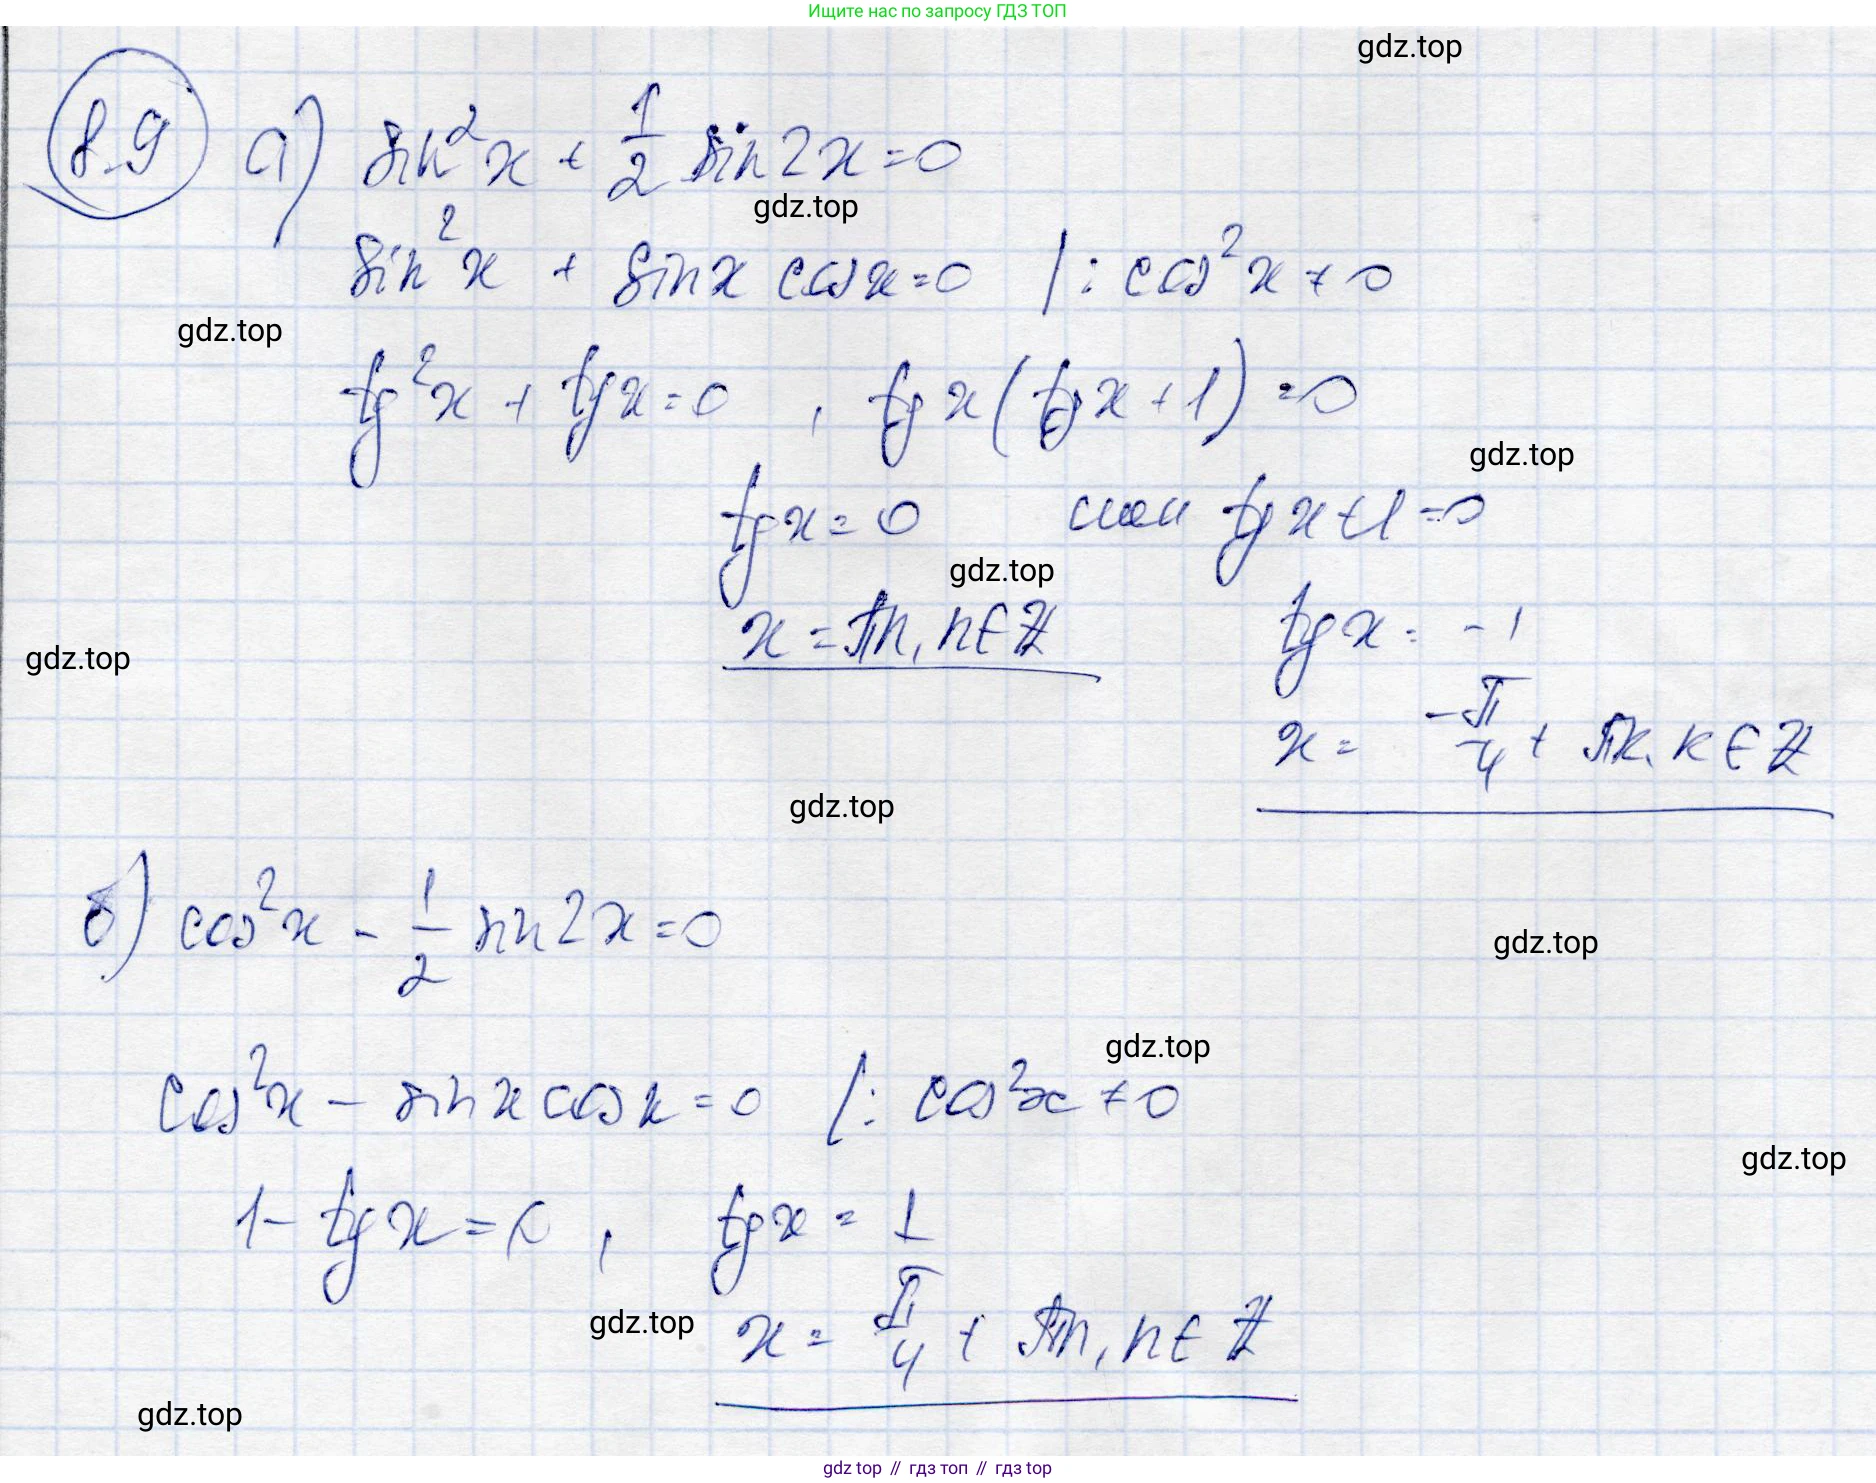 Ищите нас по запросу ГДЗ ТОП
gdz.top
8.9 а) sin²x + 1/2 sin2x = 0
gdz.top
sin²x + sinx cosx = 0 |: cos²x ≠ 0
gdz.top
tg²x + tgx = 0 , tgx(tgx + 1) = 0
gdz.top
tgx = 0 или tgx + 1 = 0
gdz.top
x = πn, n ∈ Z tgx = -1
gdz.top
x = -π/4 + πk, k ∈ Z
gdz.top
б) cos²x - 1/2 sin2x = 0
gdz.top
gdz.top
cos²x - sinx cosx = 0 |: cos²x ≠ 0
gdz.top
1 - tgx = 0 , tgx = 1
gdz.top
x = π/4 + πn, n ∈ Z
gdz.top
gdz top // гдз топ // gdz top